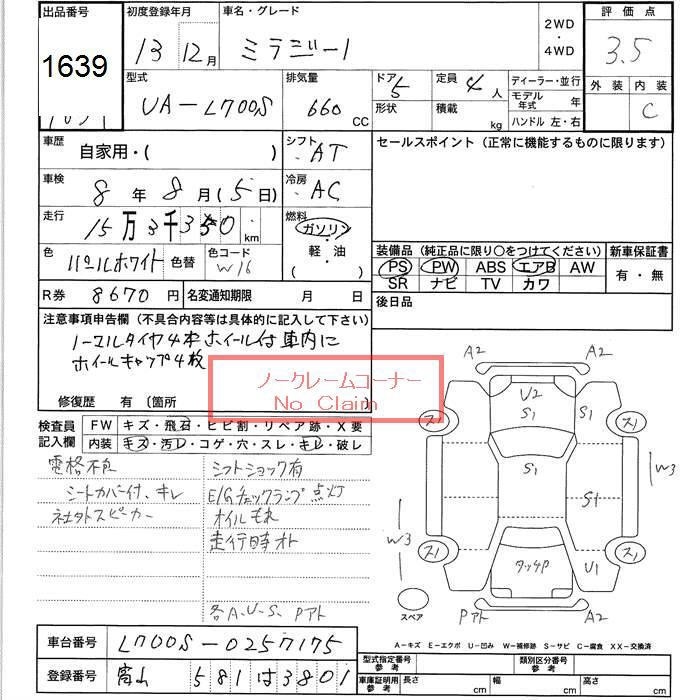 出品番号
1639
初度登録年月
13 12月
車名・グレード
ミラジーノ
2WD
・
4WD
評価点
3.5
外装 内装
C
型式
UA-L700S
排気量
660 CC
ドア 5
形状
定員 4 人
積載 kg
ディーラー・並行
モデル年式 年
ハンドル 左・右
車歴
自家用・( )
シフト
・AT
セールスポイント (正常に機能するものに限ります)
車検
8 年 8 月 (5 日)
冷房
・AC
走行
15万3千350 km
燃料
ガソリン
・
軽・油
( )
色
パールホワイト 色替
色コード
W16
装備品 (純正品に限り○をつけてください)
PS PW ABS エアB AW
SR ナビ TV カワ
新車保証書
有・無
R券 8670円
名変通知期限 月 日
後日品
注意事項申告欄 (不具合内容等は具体的に記入して下さい)
ノーマルタイヤ4本ホイール付 車内に
ホイールキャップ4枚
修復歴 有 (箇所
ノークレームコーナー
No Claim
検査員記入欄
FW キズ・飛石・ヒビ割・リペア跡・X要
内装 キズ・汚レ・コゲ・穴・スレ・キレ・破レ
電格不良
シートカバー付、キレ
社外スピーカー
シフトショック有
E/Gチェックランプ点灯
オイルもれ
走行時オト
各A、U、S、Pアト
A2 A2
U2
S1
S1
S1
W3
W3
U1
タッチP
スペア
Pアト A2
A-キズ E-エクボ U-凹み W-補修跡 S-サビ C-腐食 XX-交換済
車台番号 L700S-0257175
登録番号 富山 581 は 3801
型式指定番号 参考
類別区分番号 参考
車庫証明用 参考 長さ cm 幅 cm 高さ cm